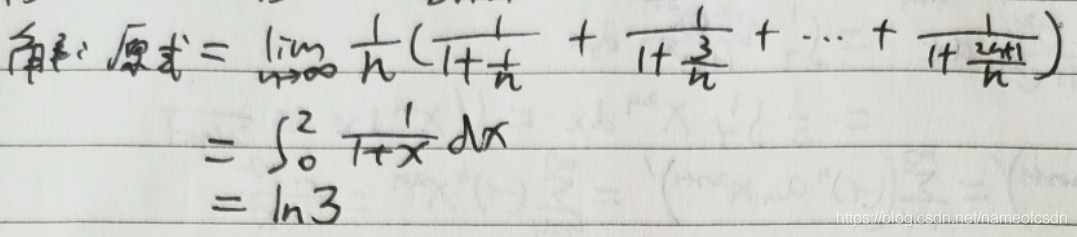 解：原式 = lim_{n→∞} \frac{1}{n} ( \frac{1}{1+\frac{1}{n}} + \frac{1}{1+\frac{3}{n}} + ⋯ + \frac{1}{1+\frac{2n+1}{n}} )
= ∫_0^2 \frac{1}{1+x} dx
= ln3
https://blog.csdn.net/nameofcsdn